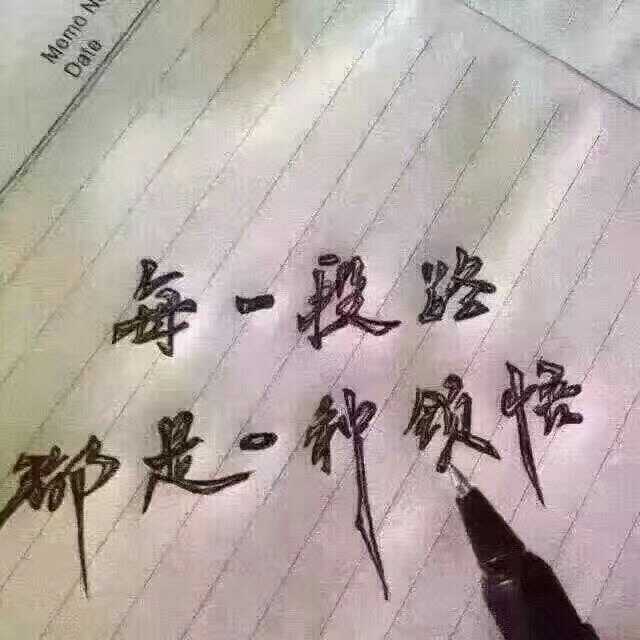 Memo No
Date
每一段路
都是一种领悟